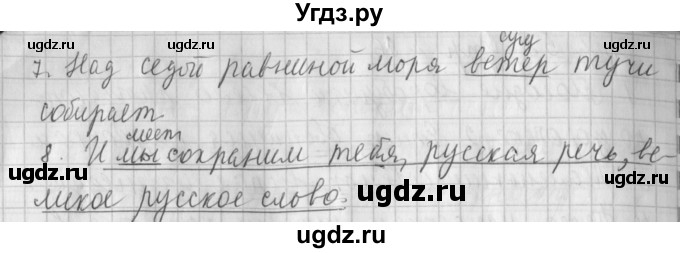 Угдз.ру
сущ
7. Над седой равниной моря ветер тучи
собирает
мест
8. И мы сохраним тебя, русская речь, ве-
ликое русское слово.
ugdz.ru ugdz.ru ugdz.ru
ugdz.ru ugdz.ru
ugdz.ru ugdz.ru
ugdz.ru
ugdz.ru